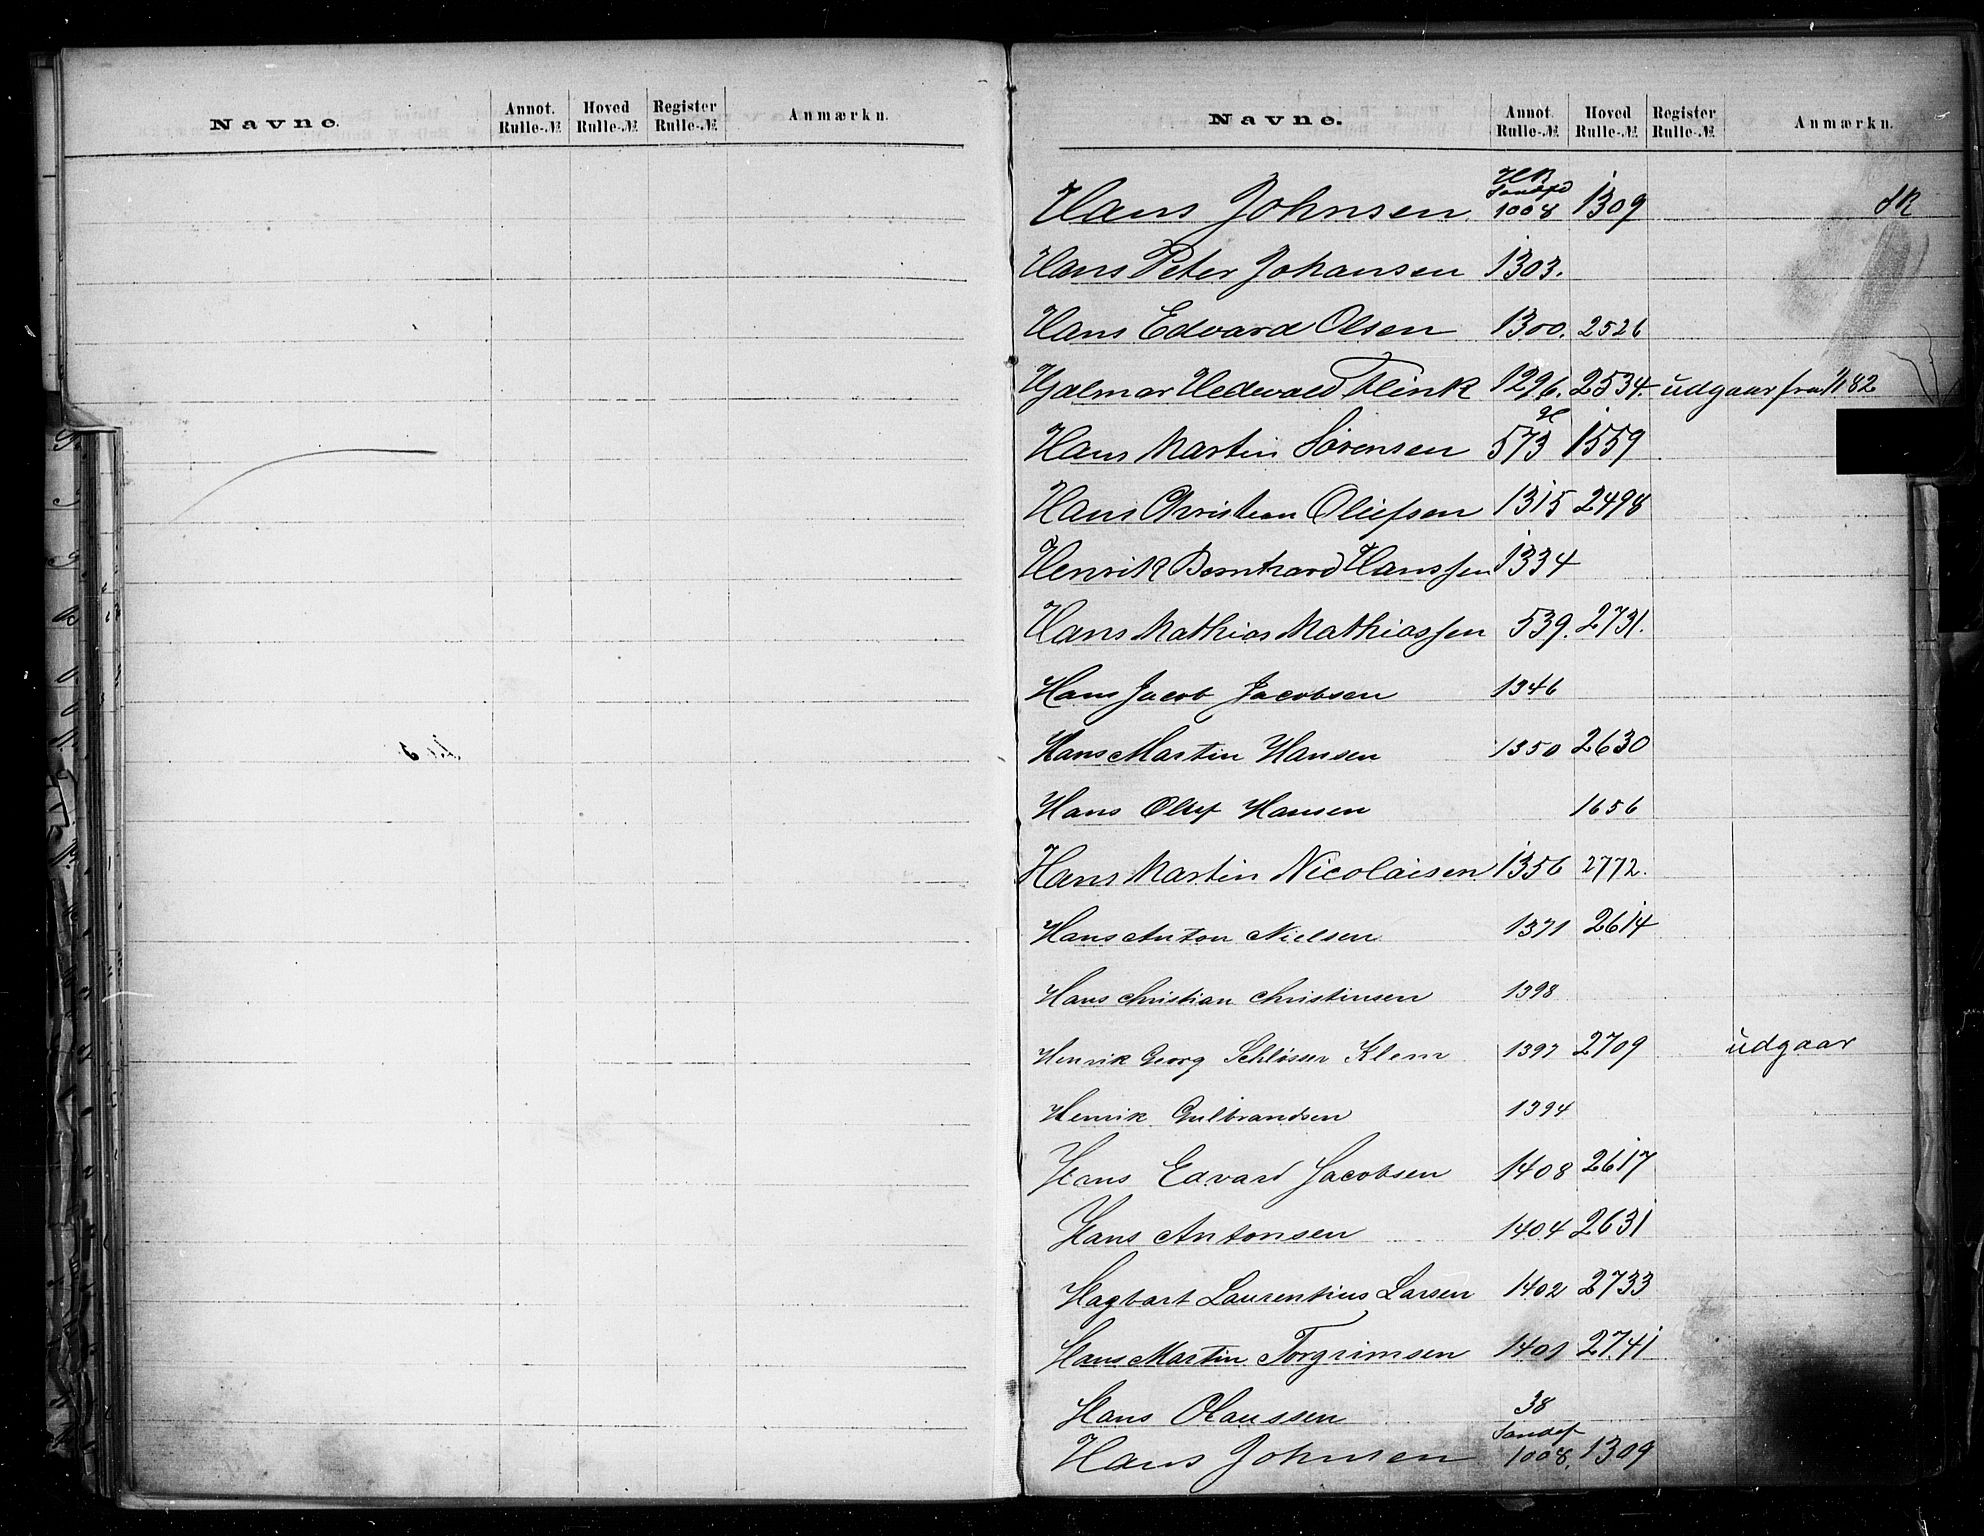 Navne. Annot. Rulle-№ Hoved Rulle-№ Register Rulle-№ Anmærkn.
Navne. Annot. Rulle-№ Hoved Rulle-№ Register Rulle-№ Anmærkn.
Hans Johnsen Sandefd 1008 1309
Hans Peter Johansen 1303.
Hans Edvard Olsen 1300. 2526
Hjalmar Hedevald Flink 1296. 2534. udgaar fra 1/1 82
Hans Martin Sørensen 573 1559
Hans Christian Oliefsen 1315 2498
Henrik Bernhard Hanssen 1334
Hans Mathias Mathiassen 539. 2731.
Hans Jacob Jacobsen 1346
Hans Martin Hansen 1350 2630
Hans Oluf Hansen 1656
Hans Martin Nicolaisen 1356 2772.
Hans Anton Nielsen 1371 2614
Hans Christian Christensen 1398
Henrik Georg Schlösser Klem 1397 2709 udgaar
Henrik Gulbrandsen 1394
Hans Edvard Jacobsen 1408 2617
Hans Antonsen 1404 2631
Hagbart Laurentius Larsen 1402 2733
Hans Martin Torgrimsen 1401 2741
Hans Olaussen 38
Hans Johnsen Sandef 1008. 1309